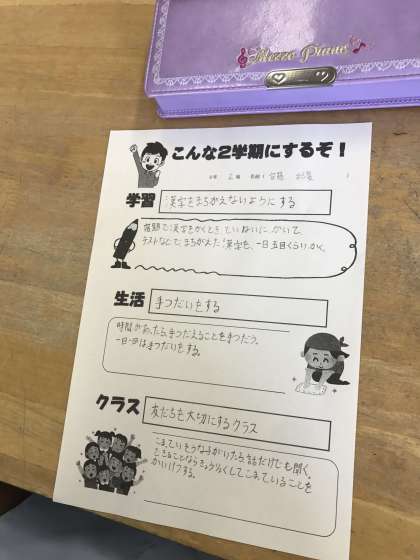 Mezzo Piano
こんな2学期にするぞ！
2組 名前（
学習
漢字をまちがえないようにする
宿題で漢字をかくとき、ていねいに、かいて
テストなどで、まちがえた漢字を、一日五回くらいかく。
生活
手つだいをする
時間があったら、手つだえることを手つだう。
一日一回は手つだいをする。
クラス
友だちを大切にするクラス
こまっていそうな子がいたら、話だけでも聞く。
できることならきょう力してこまっていることを
かいけつする。